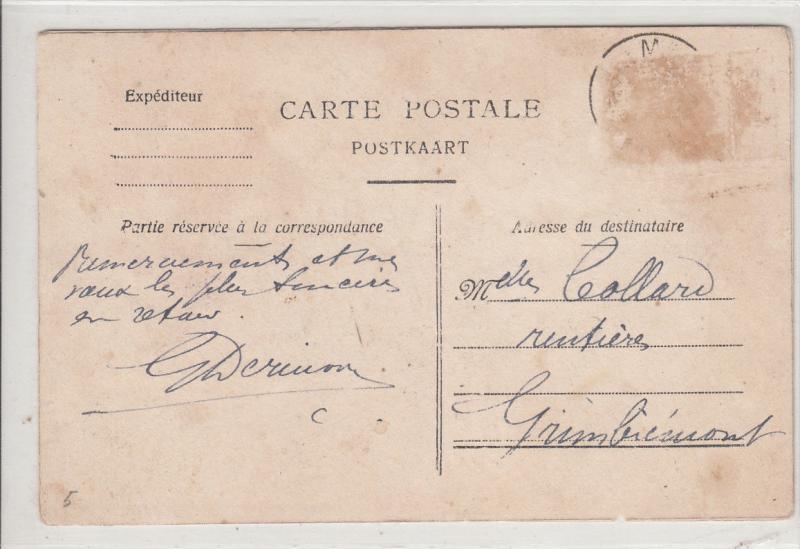 M
Expéditeur
CARTE POSTALE
POSTKAART
Partie réservée à la correspondance
Remerciements et mes
vœux les plus sincères
en retour.
Adresse du destinataire
Melles Collard
rentières
Grimbiémont
5